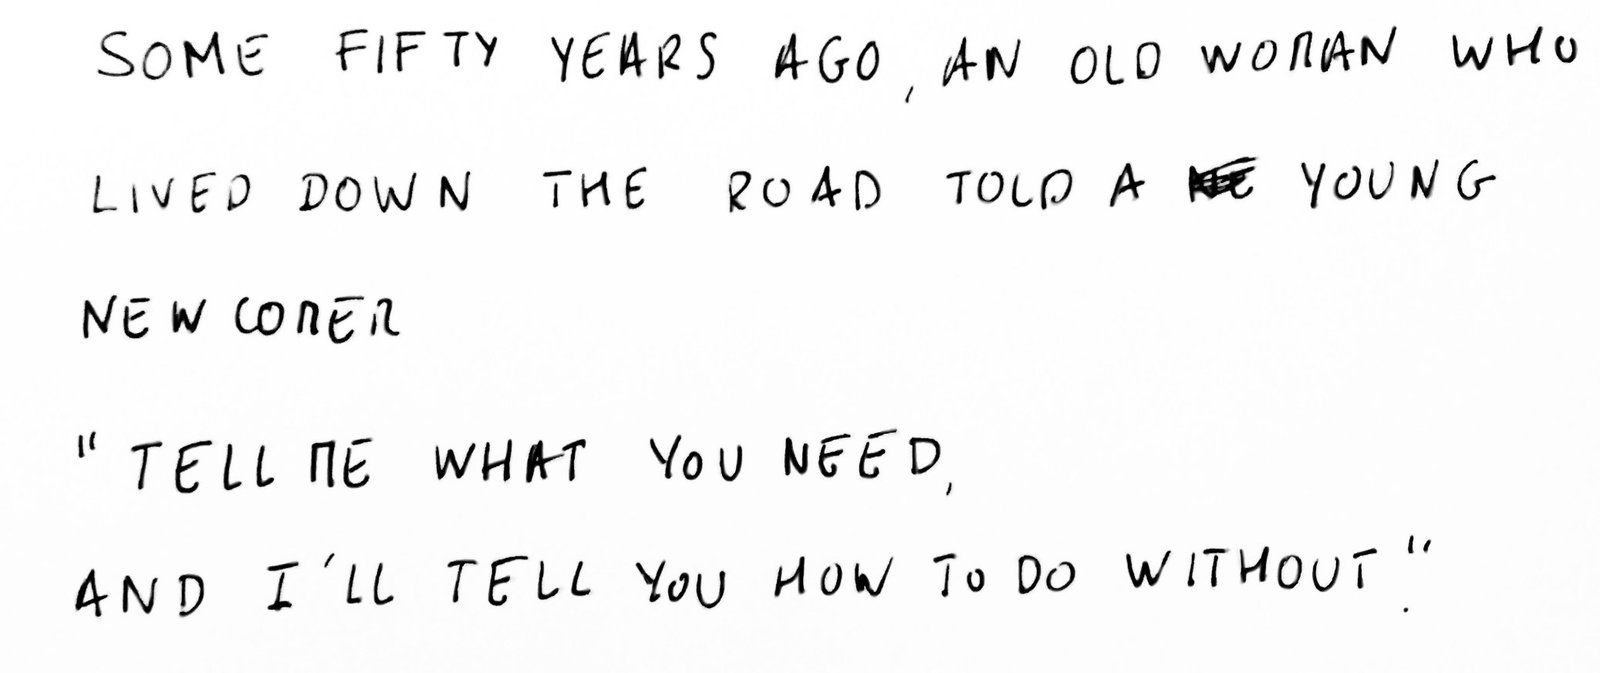 SOME FIFTY YEARS AGO, AN OLD WOMAN WHO
LIVED DOWN THE ROAD TOLD A YOUNG
NEWCOMER
"TELL ME WHAT YOU NEED,
AND I'LL TELL YOU HOW TO DO WITHOUT."